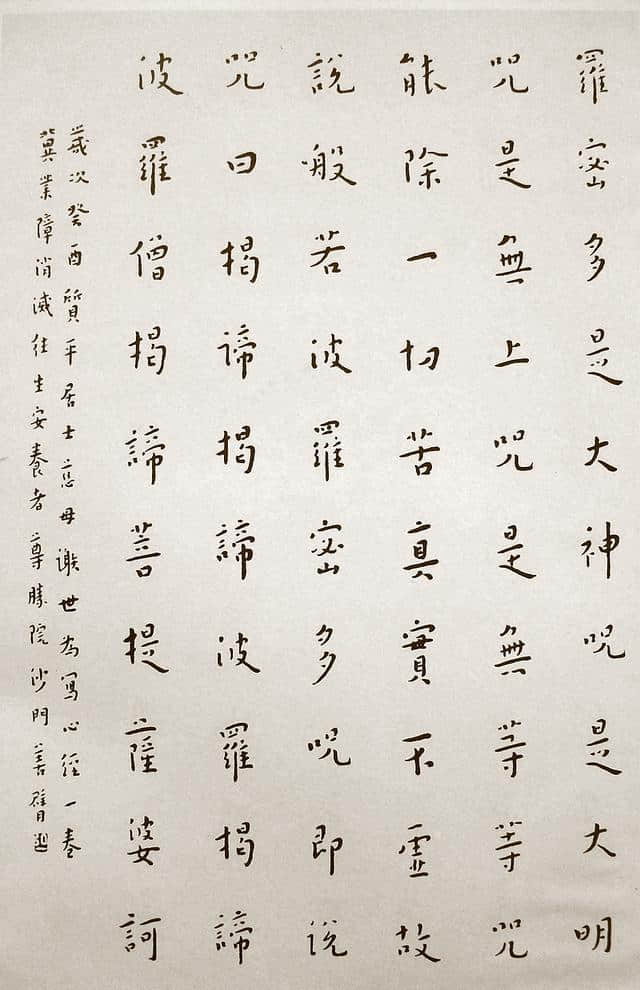 羅蜜多是大神呪是大明
呪是無上呪是無等等呪
能除一切苦真實不虛故
說般若波羅蜜多呪即說
呪曰揭諦揭諦波羅揭諦
波羅僧揭諦菩提薩婆訶
歲次癸酉質平居士慈母謝世為寫心經一卷
冀業障消滅往生安養者尊勝院沙門善臂迴